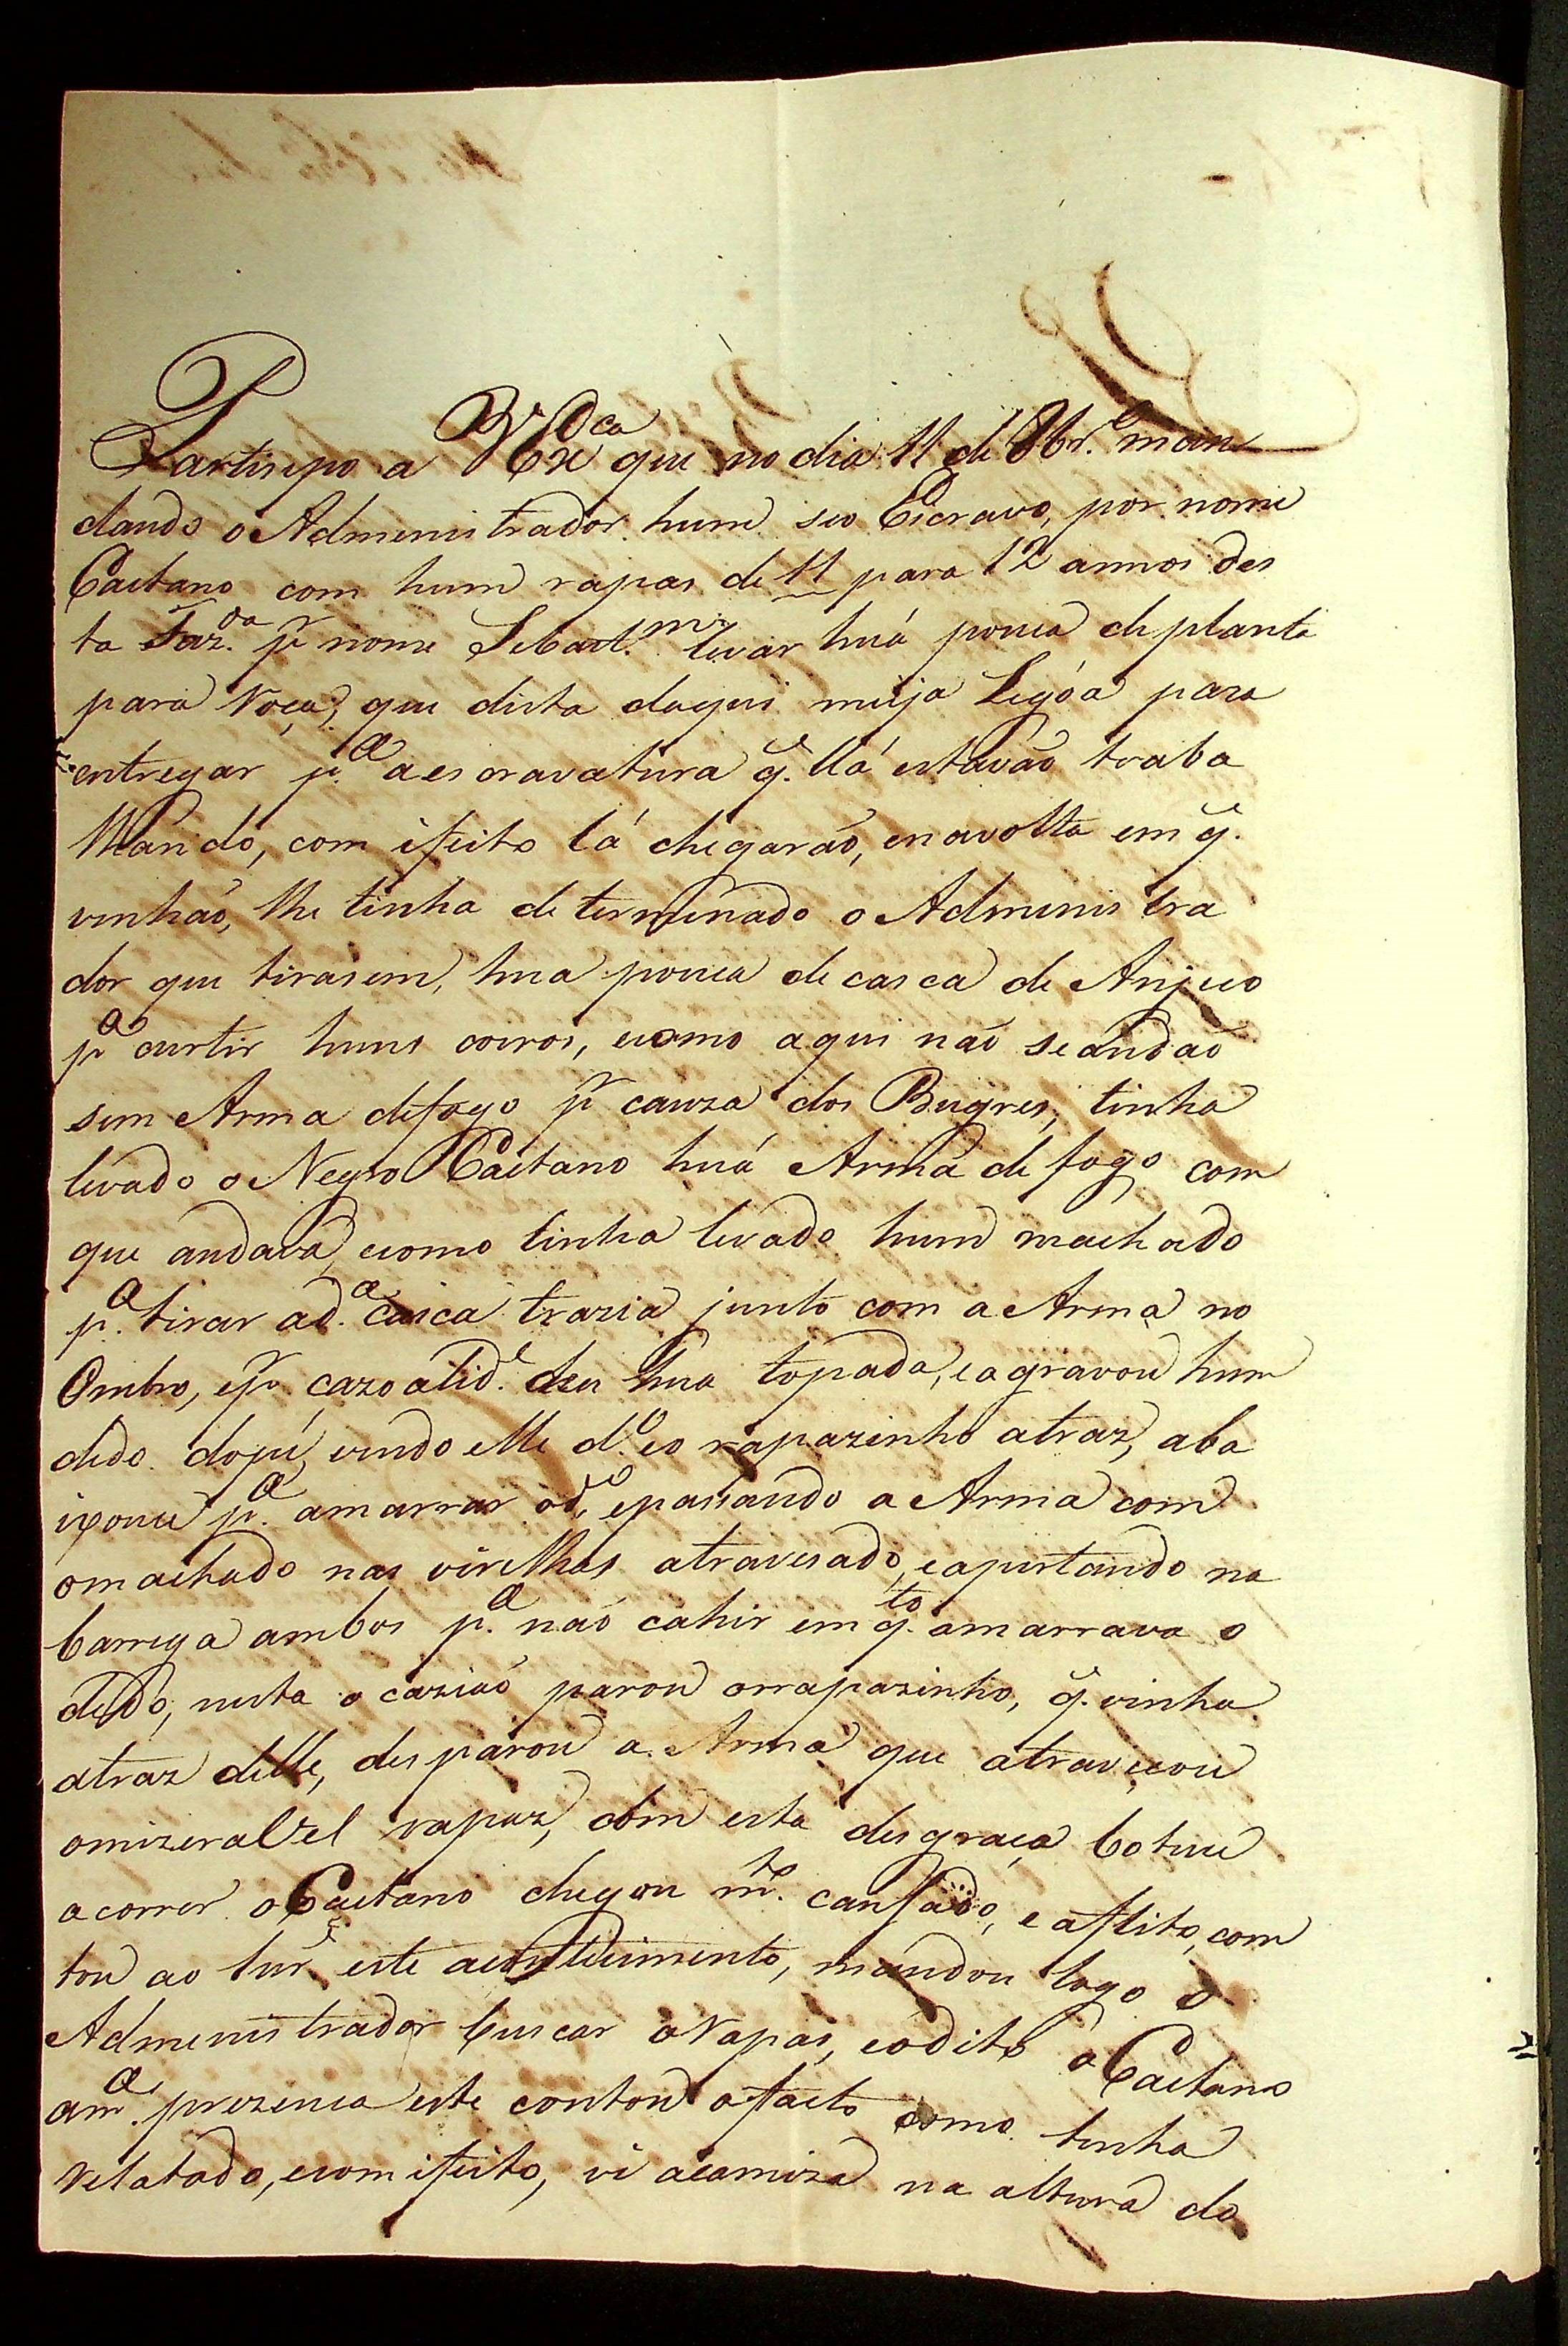 Partisipo a V. Exca que no dia 11 de 8br.e man
dando o Admenistrador hum seo Escravo, por nome
Caetano com hum rapas de 11 para 12 annos des
ta Faz.da pr nome Sebast.m levar huá pouca de planta
para Roça, que dista daqui meija Legôa para
entregar p.a a escravatura q. llá estavaõ traba
lhando, com ifeito lá chegaraõ, e na volta em q.
vinhaõ, lhe tinha determinado o Admenistra
dor que tirasem, hua pouca de casca de Anjico
p.a curtir huns coiros, e como aqui naõ se andaõ
sem Arma de fogo pr cauza dos Bugres, tinha
levado o Negro Caetano huá Arma de fogo com
que andava, e como tinha levado hum machado
p.a tirar a d.a casca trazia junto com a Arma no
Ombro, e pr cazoalid.e deu hua topada, e agravou hum
dedo do pé, vindo elle d.o e o rapazinho atraz, aba
ixouce p.a amarrar o d.o e pasando a Arma com
o machado nas virilhas atravesado, e apertando na
barriga ambos p.a naõ cahir em q.to amarrava o
dedo, nesta ocaziaõ parou o rrapazinho, q. vinha
atraz delle, desparou a Arma que atraveçou
o mizeravel rapaz, com esta desgraça botouce
a correr o Caetano chegou m.to cansado, e aflito, com
tou ao Snr. este acontecimento, mandou logo o
Admenistrador buscar o Rapas, e o dito o Caetano
a m.a prezenca este contou o facto como tinha
Relatado, e com ifeito, vi a camiza na altura do